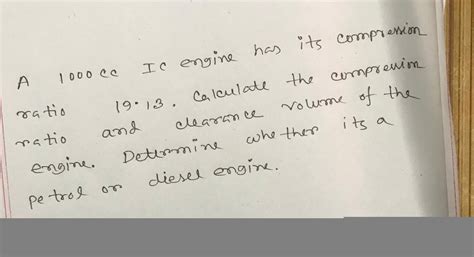 A 1000 cc IC engine has its compression
ratio 19.13. Calculate the compression
ratio and clearance volume of the
engine. Determine whether its a
petrol or diesel engine.